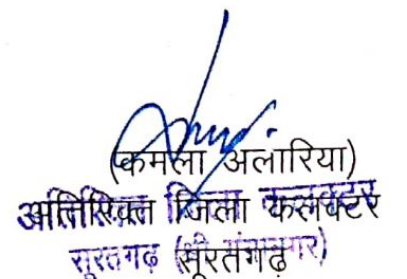 (कमला अलारिया)
अतिरिक्त जिला कलक्टर
सूरतगढ़ (श्री गंगानगर)